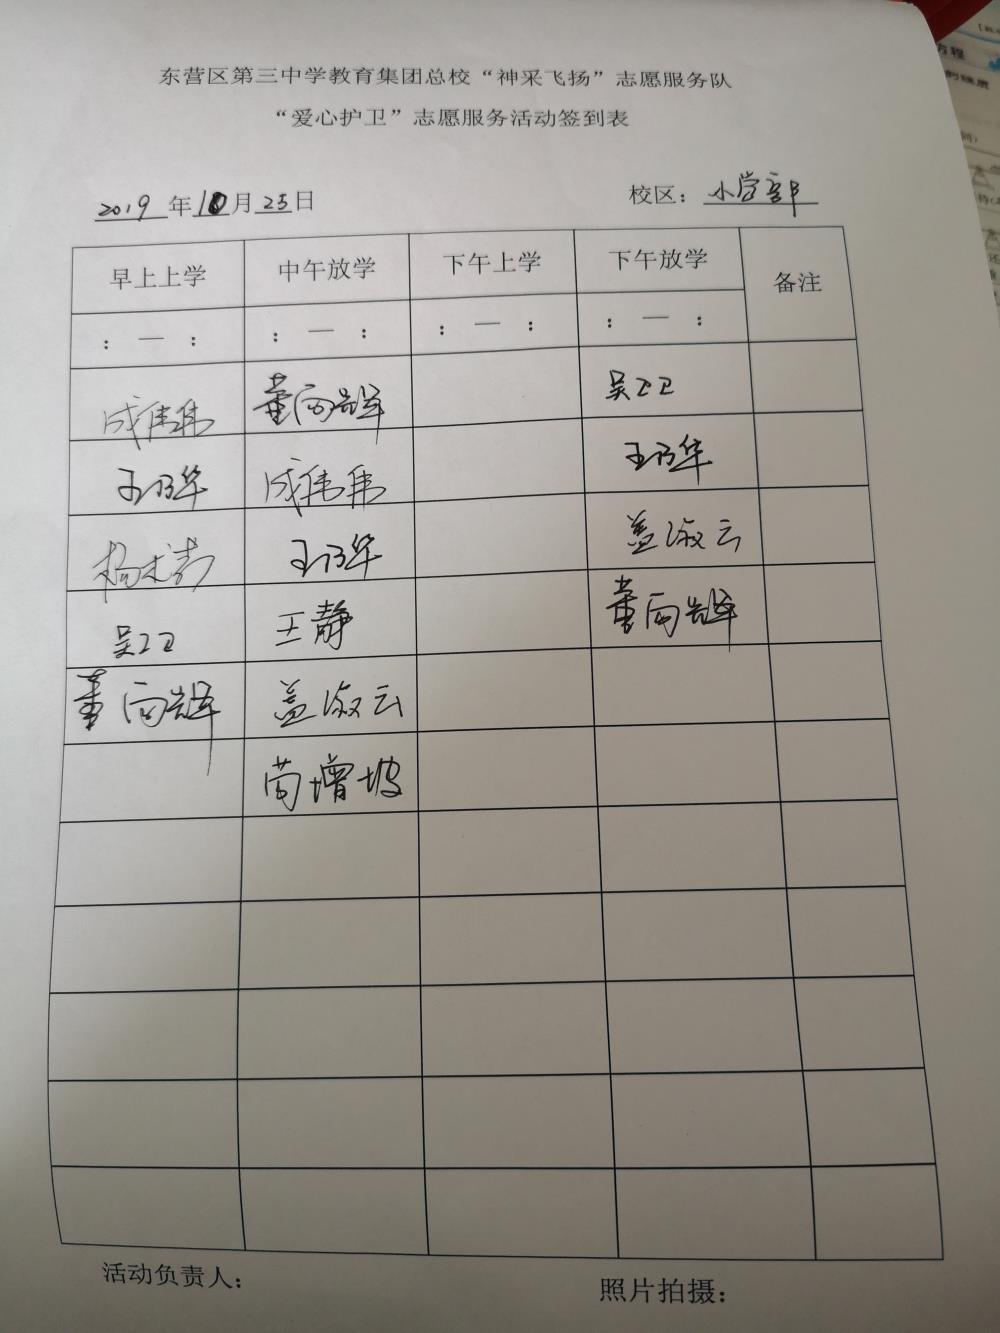 东营区第三中学教育集团总校“神采飞扬”志愿服务队
“爱心护卫”志愿服务活动签到表
2019 年 10 月 25 日 校区：小学部
早上上学 中午放学 下午上学 下午放学 备注
： — ： ： — ： ： — ： ： — ：
成伟伟 董向辉 吴卫卫
王乃华 成伟伟 王乃华
王乃华 盖淑云
吴卫卫 王静 董向辉
董向辉 盖淑云
苟增坡
活动负责人： 照片拍摄：
方程